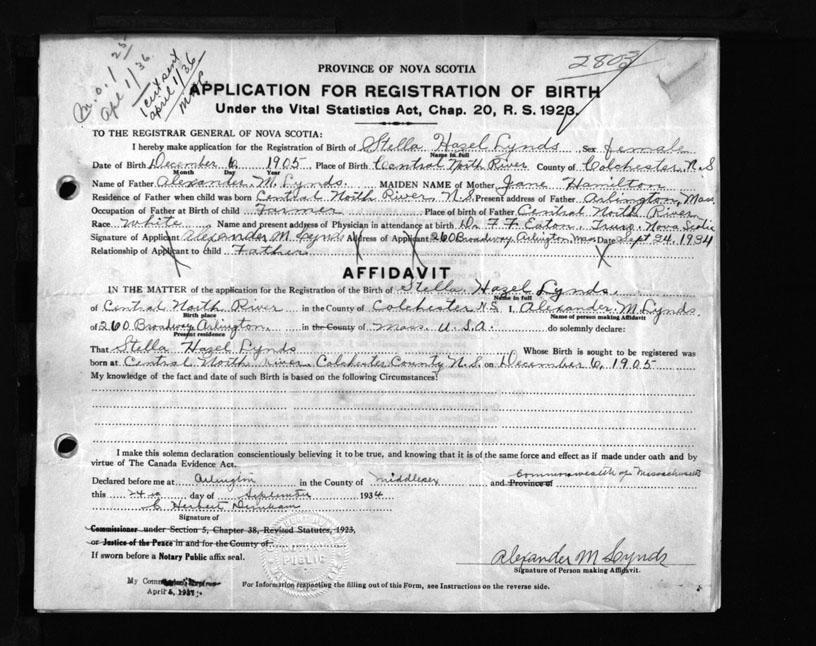 M.O. 1 25
Apl 1/36
cert sent
april 1/36
2803
PROVINCE OF NOVA SCOTIA
APPLICATION FOR REGISTRATION OF BIRTH
Under the Vital Statistics Act, Chap. 20, R. S. 1923.
TO THE REGISTRAR GENERAL OF NOVA SCOTIA:
I hereby make application for the Registration of Birth of Stella Hazel Lynds Sex female
Name in full
Date of Birth December 6 1905 Place of Birth Central North River County of Colchester N.S
Month Day Year
Name of Father Alexander M. Lynds. MAIDEN NAME of Mother Jane Hamilton
Residence of Father when child was born Central North River N.S. Present address of Father Arlington, Mass.
Occupation of Father at Birth of child Farmer Place of birth of Father Central North River
Race White Name and present address of Physician in attendance at birth Dr F F Eaton, Truro, Nova Scotia
Signature of Applicant Alexander M Lynds Address of Applicant 260 Broadway Arlington Mass Date Sept 24. 1934
Relationship of Applicant to child Father.
AFFIDAVIT
IN THE MATTER of the application for Registration of the Birth of Stella Hazel Lynds.
Name in full
of Central North River in the County of Colchester N.S. I, Alexander. M. Lynds.
Birth place Name of person making Affidavit
of 260 Broadway Arlington, in the County of Mass. U.S.A. do solemnly declare:
Present residence
That Stella Hazel Lynds Whose Birth is sought to be registered was
born at Central North River Colchester County N.S. on December 6, 1905
My knowledge of the fact and date of such Birth is based on the following Circumstances:
I make this solemn declaration conscientiously believing it to be true, and knowing that it is of the same force and effect as if made under oath and by
virtue of The Canada Evidence Act.
Declared before me at Arlington in the County of Middlesex and Province of Commonwealth of Massachusetts
this 24 day of September 1934
Herbert
Signature of
Commissioner under Section 5, Chapter 38, Revised Statutes, 1923,
or Justice of the Peace in and for the County of
If sworn before a Notary Public affix seal.
PUBLIC
Alexander M Lynds
Signature of Person making Affidavit.
My Commission Expires
April 5, 1937.
For Information respecting the filling out of this Form, see Instructions on the reverse side.